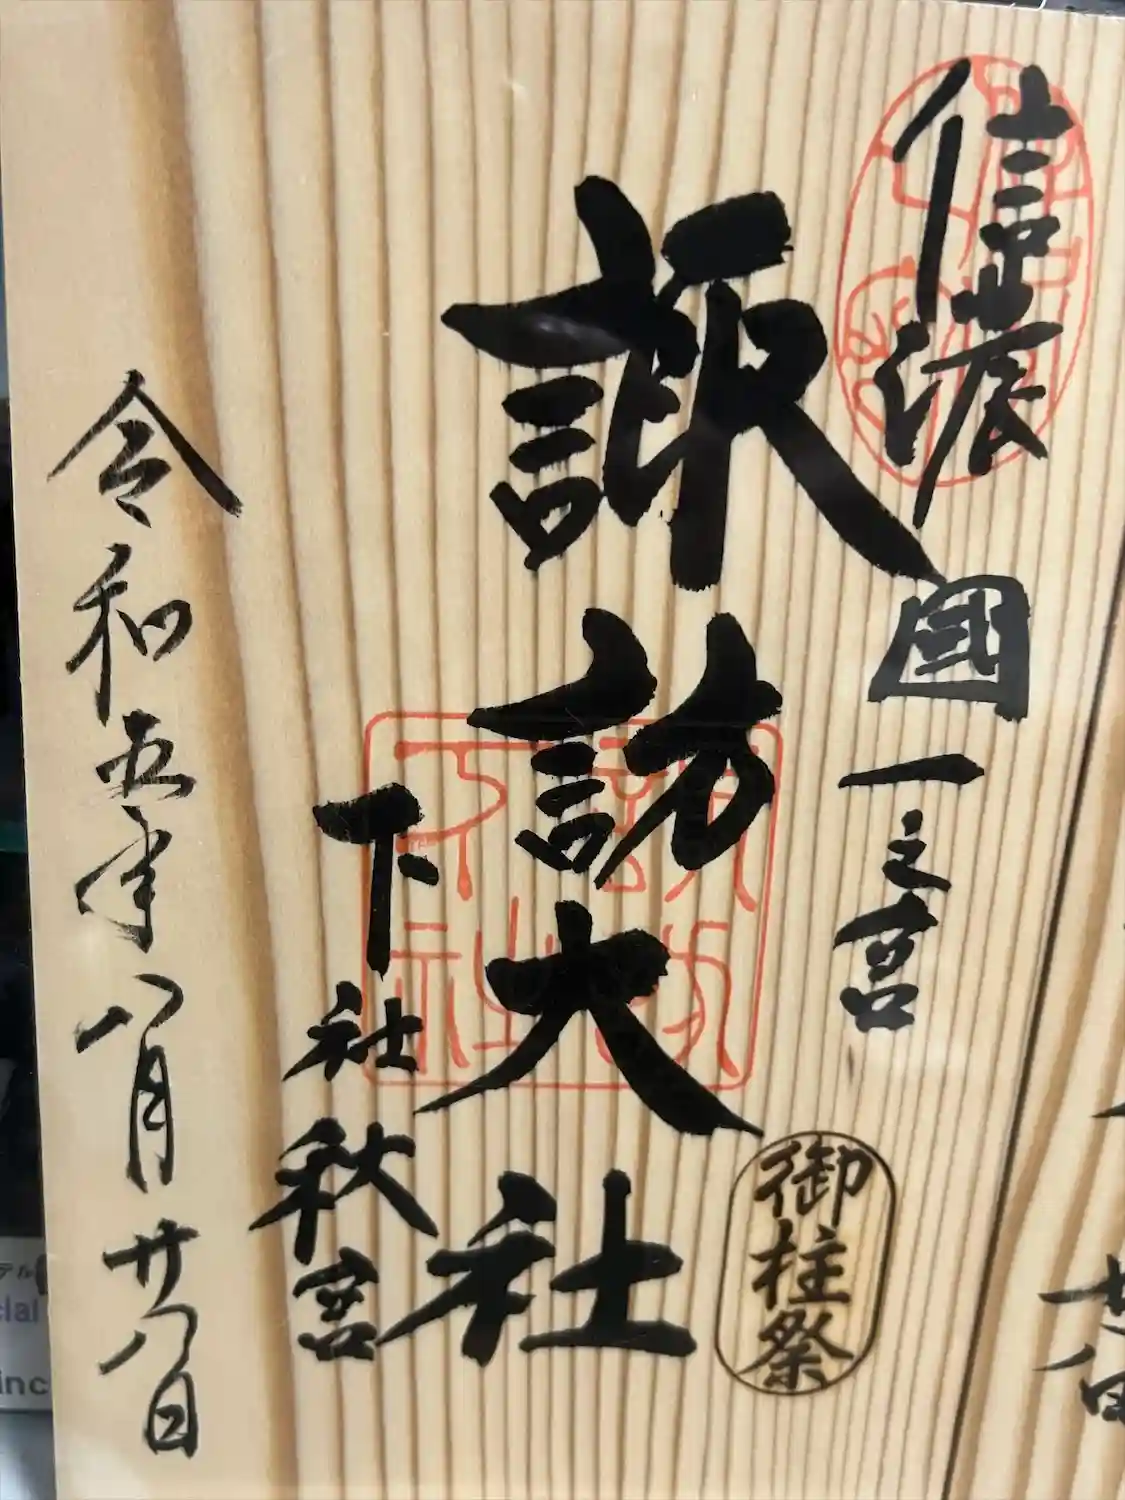 信濃國一之宮
諏訪大社
御柱祭
下社秋宮
令和五年八月廿八日